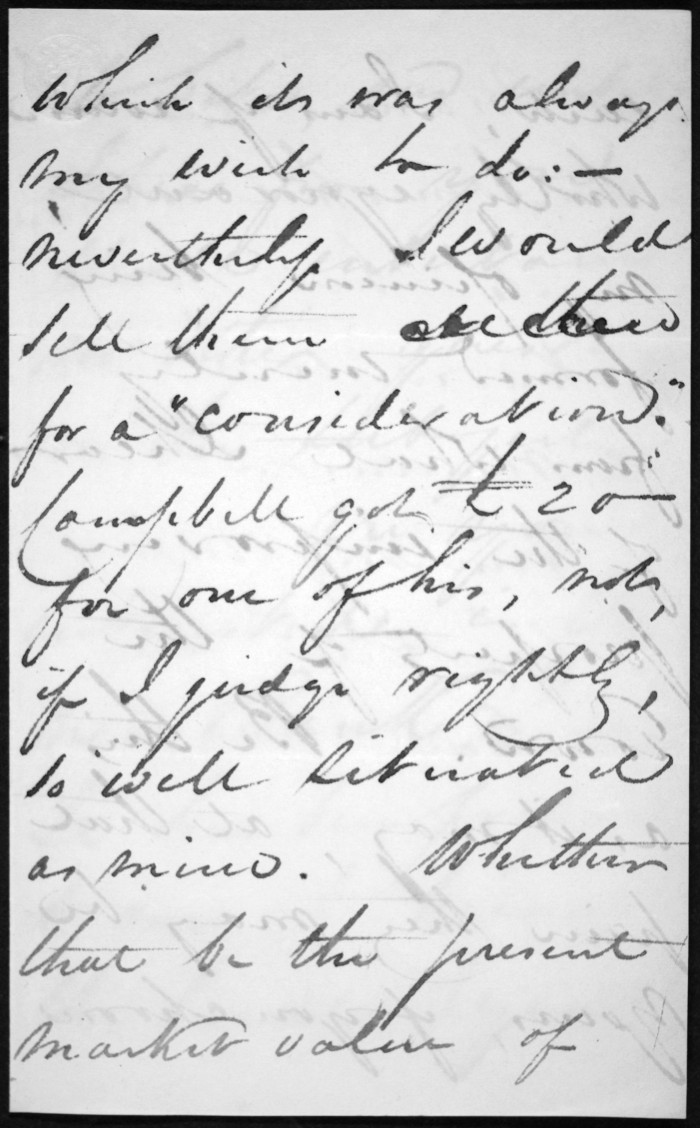 which its was always
my wish to do:—
nevertheless I would
sell them
for a "consideration."
Campbell got £20—
for one of his, not,
if I judge rightly,
so well situated
as mine. Whether
that be the present
market value of